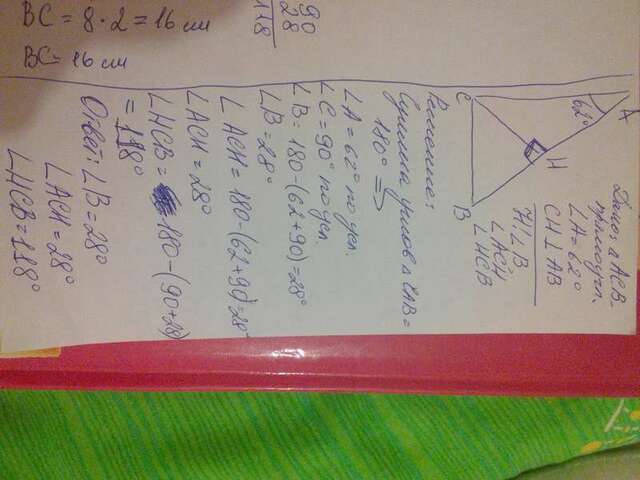 BC = 8 · 2 = 16 см
BC = 16 см
90
28
118
A
62°
C
H
B
Дано: Δ ACB -
прямоуг.
∠A = 62°
CH ⊥ AB
Н: ∠B
∠ACH
∠HCB
Решение:
Сумма углов Δ CAB =
180° =>
∠A = 62° по усл.
∠C = 90° по усл.
∠B = 180 - (62 + 90) = 28°
∠B = 28°
∠ACH = 180 - (62 + 90) = 28°
∠ACH = 28°
∠HCB = 180 - (90 + 28)
= 118°
Ответ: ∠B = 28°
∠ACH = 28°
∠HCB = 118°